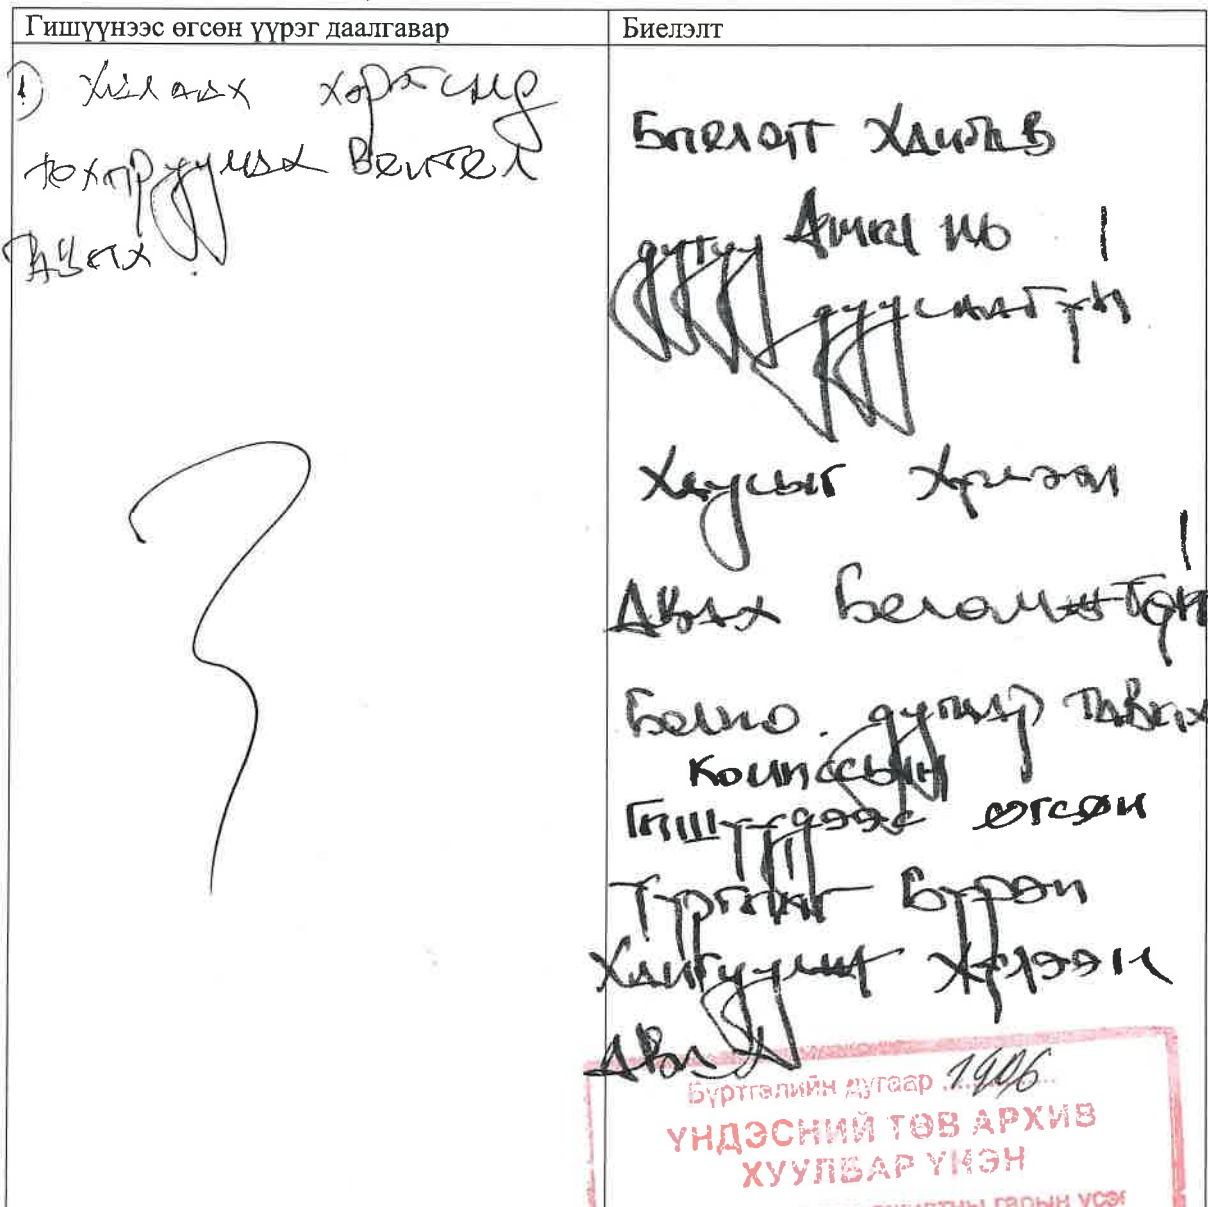 Гишүүнээс өгсөн үүрэг даалгавар
Биелэлт
1) Хялаах хэрэгсэлд
тохируулах вентел
тавих.
Биелэлт хангав
дутуу ажил нь
дуусаагүй
Хаусыг хүлээн
Авах боломжгүй
Болно. дугаар тавих
комиссын
Гишүүдээс өгсөн
Үүргийг бүрэн
Хангуулж хүлээн
Авах
Бүртгэлийн дугаар 1906
ҮНДЭСНИЙ ТӨВ АРХИВ
ХУУЛБАР ҮНЭН
гарын үсэг